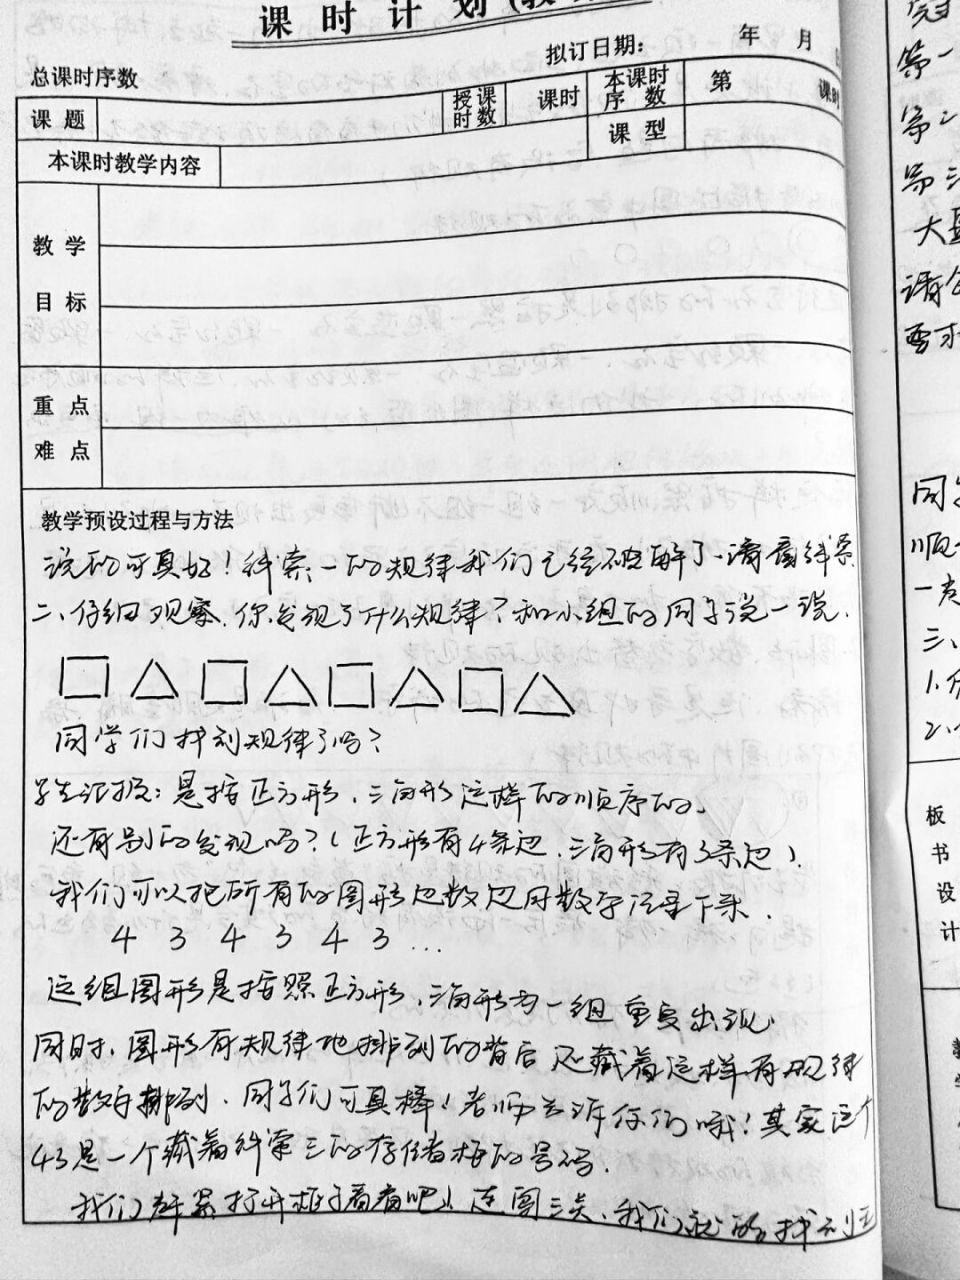 课 时 计 划
拟订日期： 年 月
总课时序数
课 题
授课时数
课时
本课时序数
第 课时
课 型
本课时教学内容
教 学
目 标
重 点
难 点
教学预设过程与方法
说的可真好！线索一的规律我们已经破解了，请看线索
二、仔细观察，你发现了什么规律？和小组的同学说一说.
同学们找到规律了吗？
学生汇报：是按正方形、三角形这样的顺序的。
还有别的发现吗？（正方形有4条边，三角形有3条边）.
我们可以把所有的图形边数也用数字记录下来.
4 3 4 3 4 3 …
这组图形是按照正方形、三角形为一组重复出现
同时，图形有规律地排列的背后还藏着这样有规律
的数字排列. 同学们可真棒！老师告诉你们哦！其实这个
43是一个藏着线索三的存储柜的号码.
我们赶紧打开柜子看看吧！ 我们就能找到
第一
第二
大
请
要求
同学
顺
三、
1.
2.
板
书
设
计